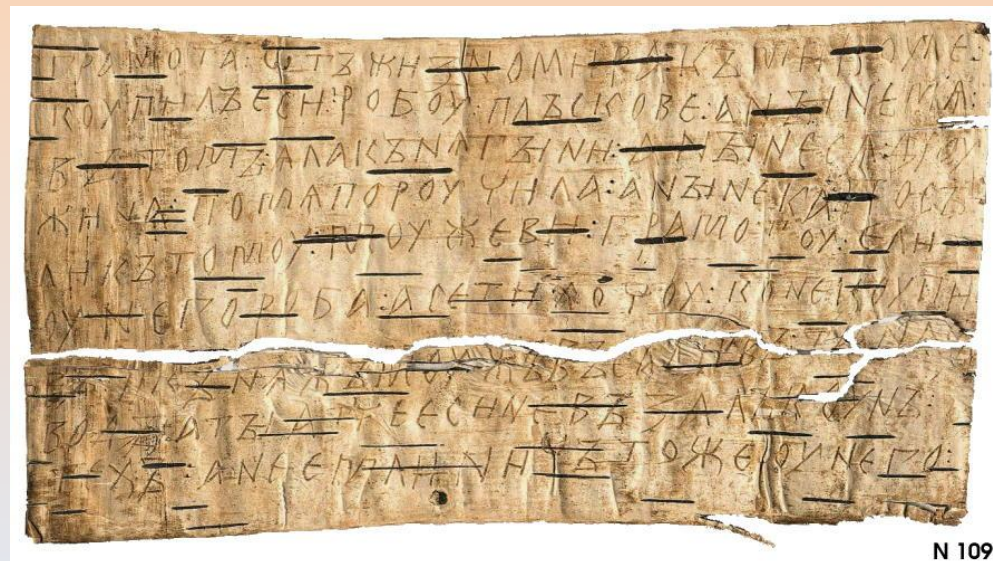 ГРАМОТА : ѠТЪ ЖИЗНОМИРА КЪ МИКОУЛЕ :
КОУПИЛЪ ЕСИ : РОБОУ ПЛЪСКОВЕ : А НЫНЕ МѦ :
ВЪ ТОМЪ : ѦЛА КЪНѦГЫНИ : А НЫНЕ СѦ ДРОУ
ЖИНА : ПО МѦ ПОРОУЧИЛА : А НЫНЕ КА ПОСЪ
ЛИ КЪ ТОМОУ : МОУЖЕВИ : ГРАМОТОУ : Е ЛИ
ОУ НЕГО РОБА : А СЕ ТИ ХОЧОУ : КОНЕ КОУПИ
ВЪ : И КЪНѦЖЪ МОУЖЪ ВЪСАДИВЪ : ТА НА СЪ
ВОДЫ : А ТЫ АТЧЕ ЕСИ НЕ ВЪЗАЛЪ КОУНЪ :
ТЕХЪ : А НЕ ЕМЛИ : НИЧЪТО ЖЕ ОУ НЕГО :
N 109